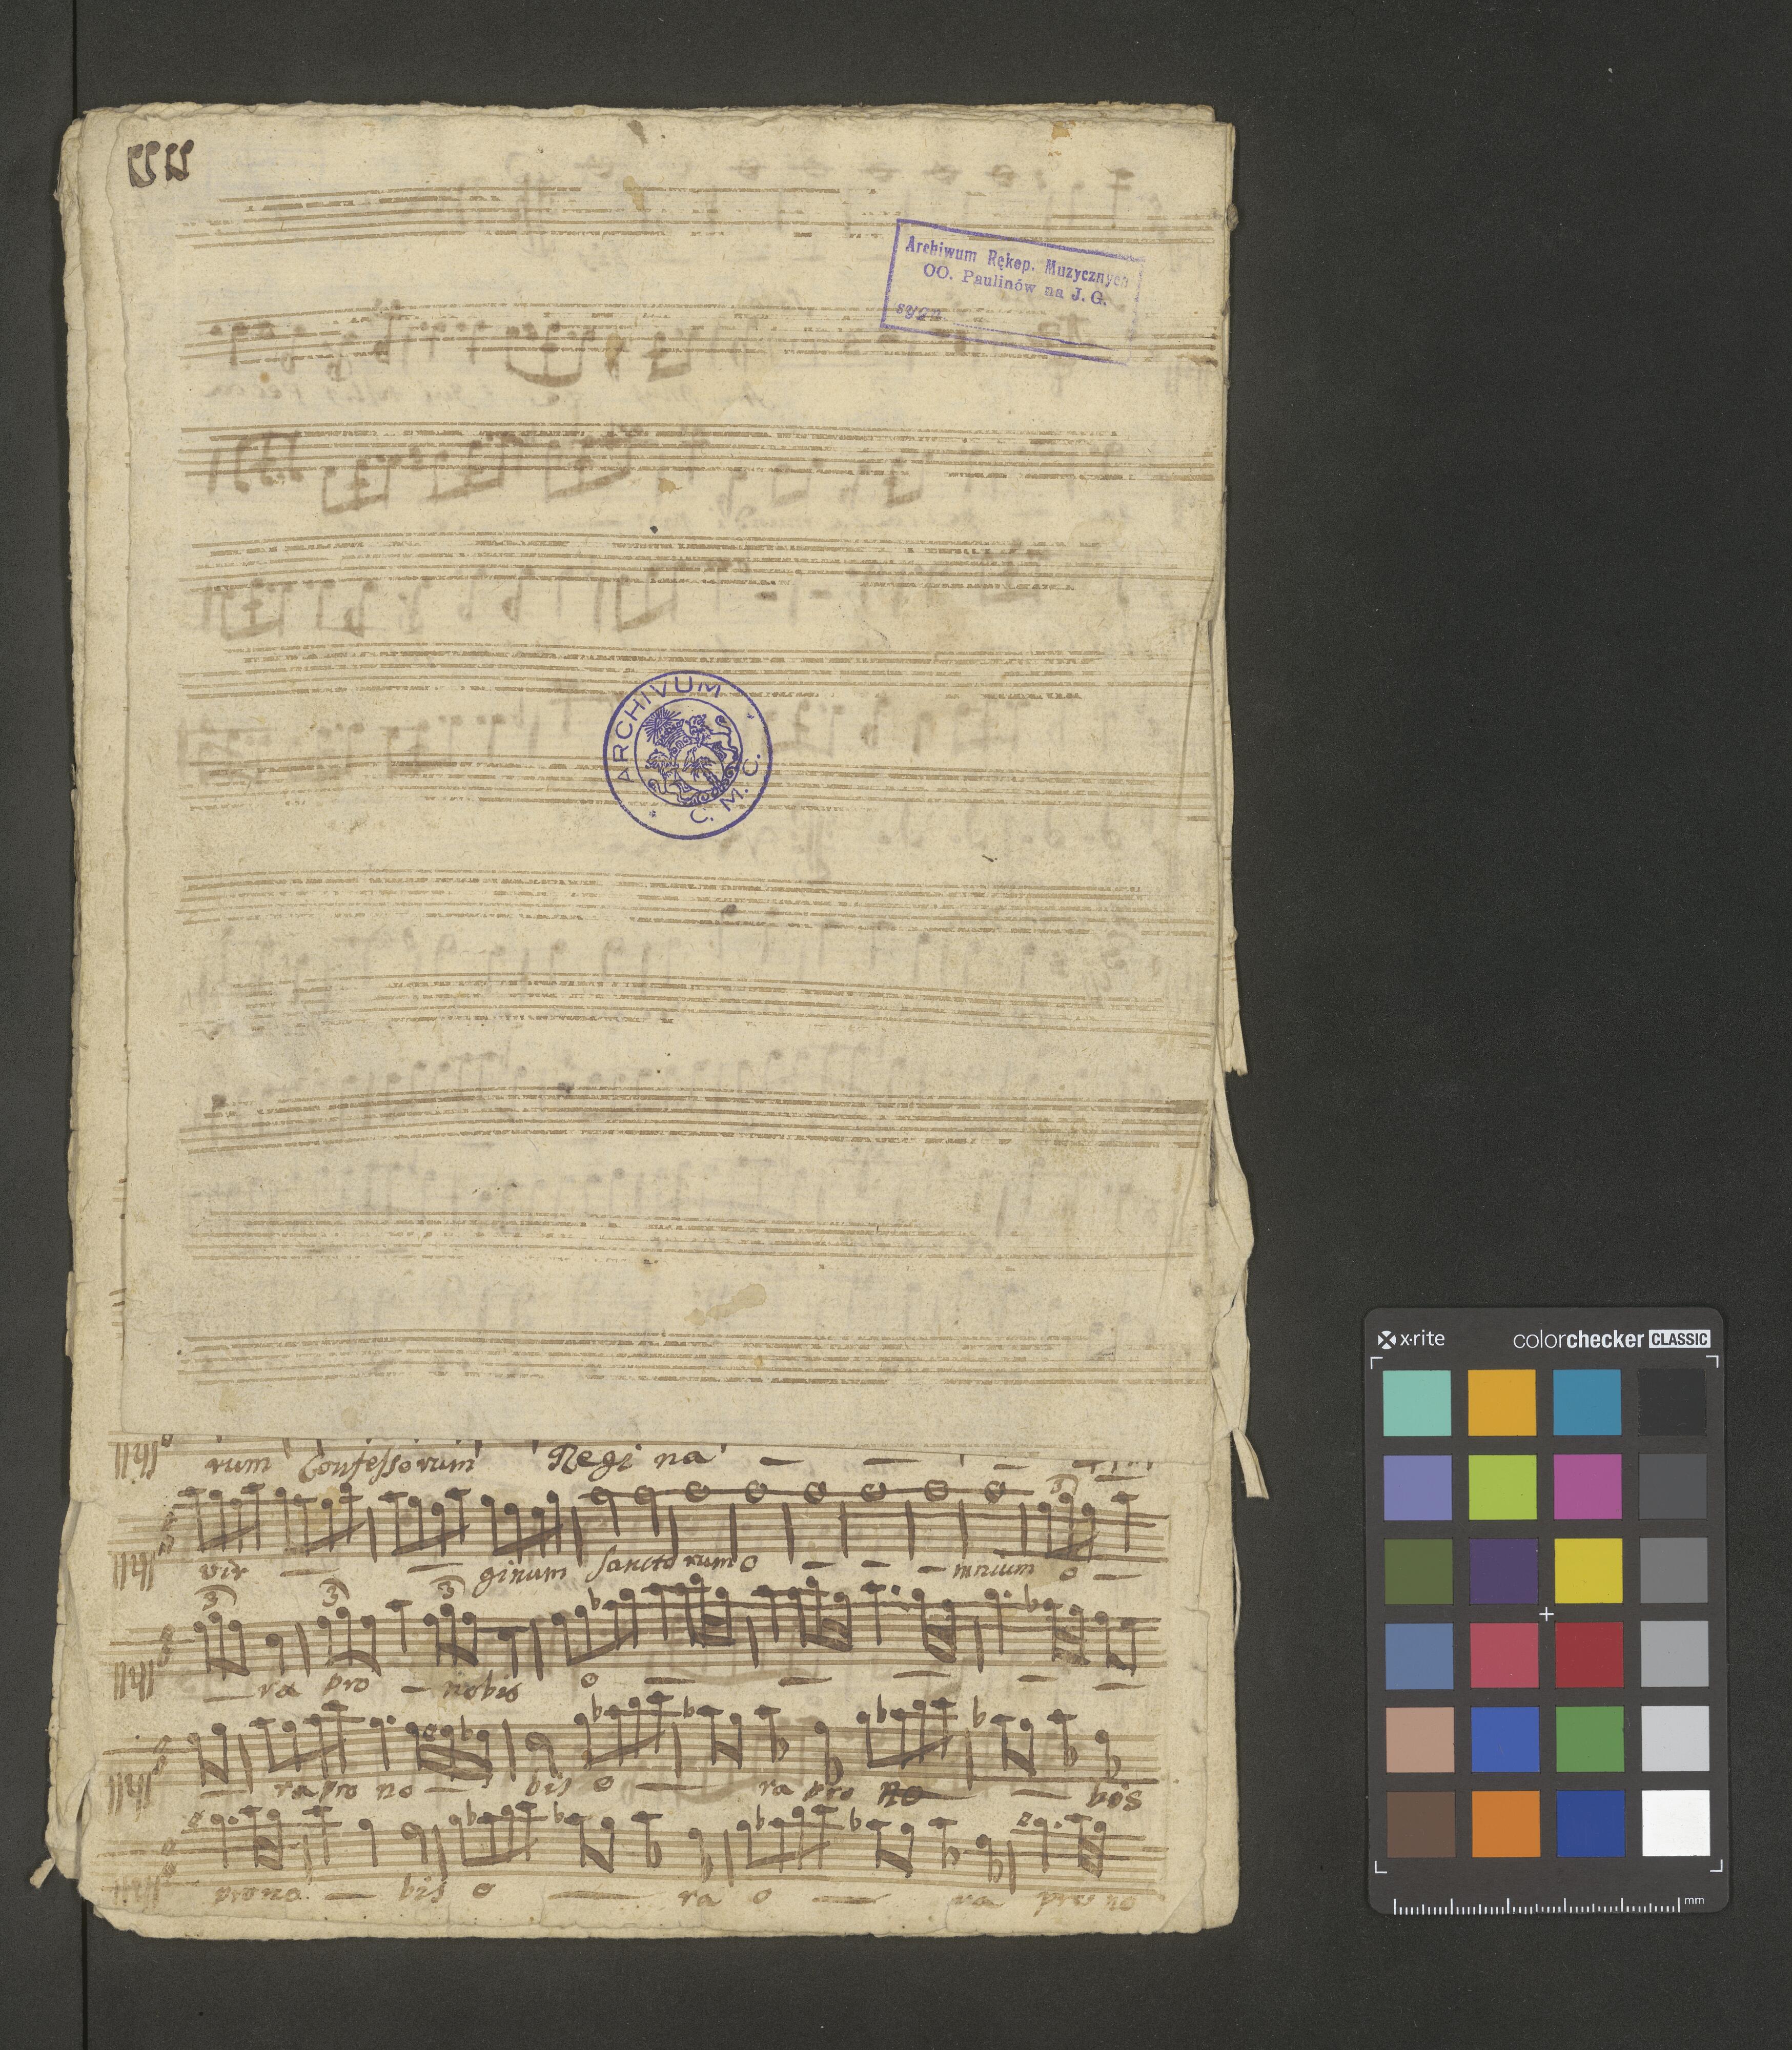 Archiwum Rękop. Muzycznych
OO. Paulinów na J. G.
sygn.
ARCHIVUM C. M. C.
rum Confessorum Regi na — — — —
3
vir — — ginum Sanctorum o — — — mnium o —
3 3 3
— ra pro — nobis o — — — — —
— ra pro no — bis o — ra pro no — bis
prono — bis o — ra o — ra pro no
x-rite colorchecker CLASSIC
mm